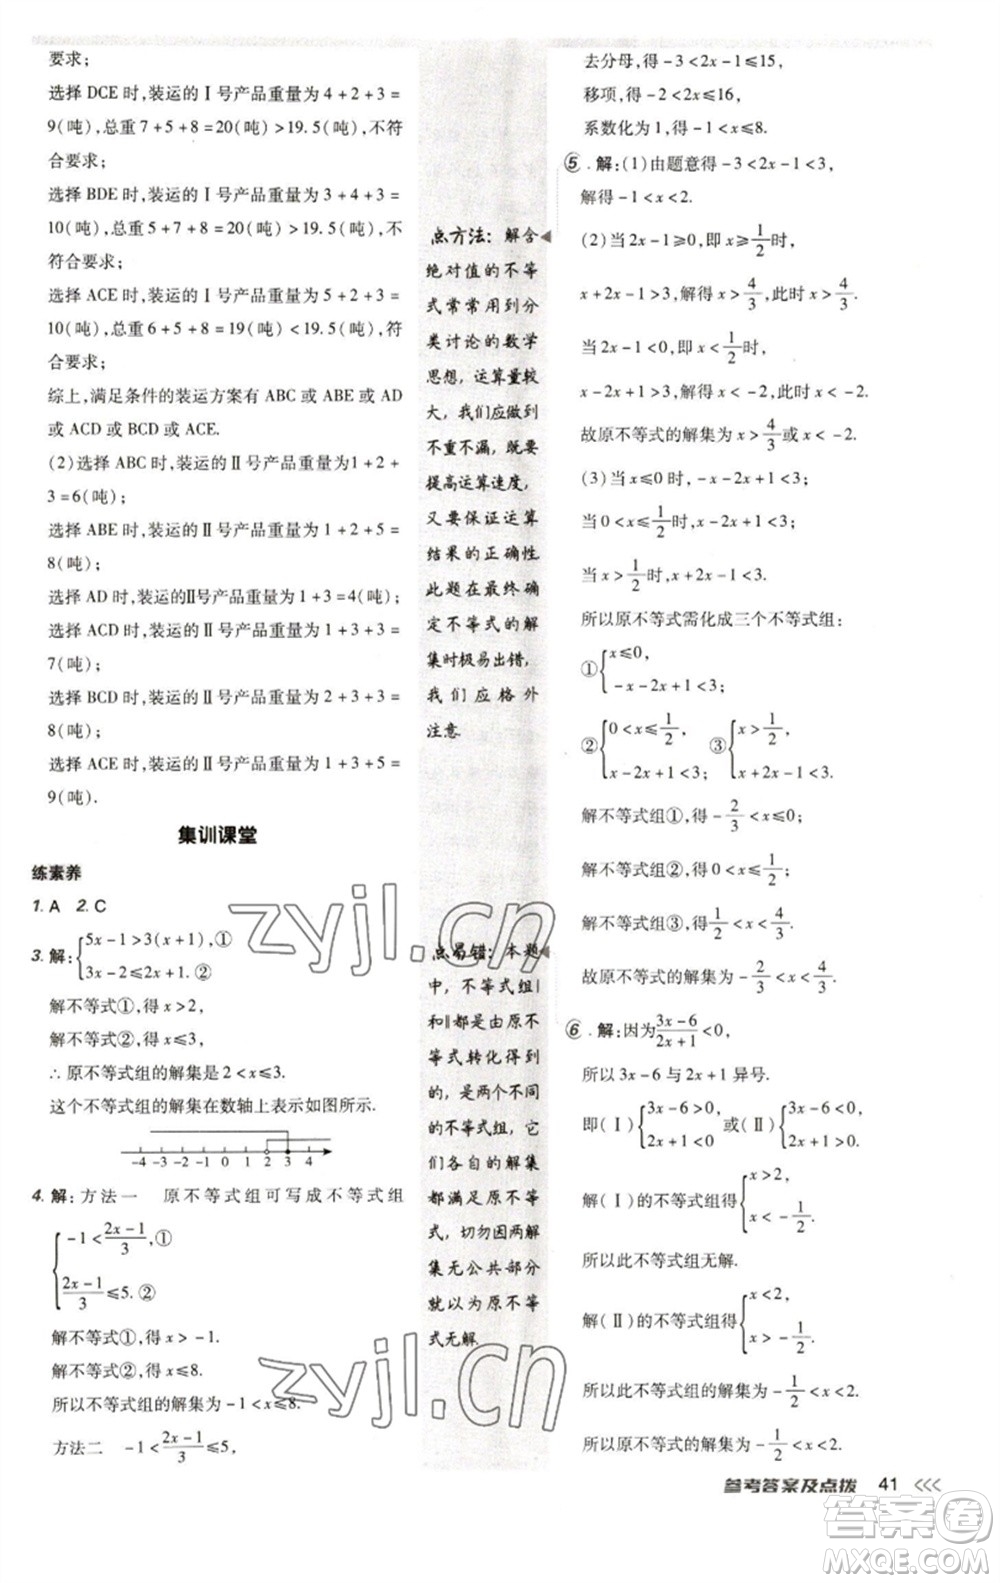 要求;
选择 DCE 时,装运的Ⅰ号产品重量为 4+2+3=
9(吨),总重 7+5+8=20(吨)>19.5(吨),不符
合要求;
选择 BDE 时,装运的Ⅰ号产品重量为 3+4+3=
10(吨),总重 5+7+8=20(吨)>19.5(吨),不
符合要求;
选择 ACE 时,装运的Ⅰ号产品重量为 5+2+3=
10(吨),总重 6+5+8=19(吨)<19.5(吨),符
合要求;
综上,满足条件的装运方案有 ABC 或 ABE 或 AD
或 ACD 或 BCD 或 ACE.
(2)选择 ABC 时,装运的Ⅱ号产品重量为 1+2+
3=6(吨);
选择 ABE 时,装运的Ⅱ号产品重量为 1+2+5=
8(吨);
选择 AD 时,装运的Ⅱ号产品重量为 1+3=4(吨);
选择 ACD 时,装运的Ⅱ号产品重量为 1+3+3=
7(吨);
选择 BCD 时,装运的Ⅱ号产品重量为 2+3+3=
8(吨);
选择 ACE 时,装运的Ⅱ号产品重量为 1+3+5=
9(吨).
集训课堂
练素养
1. A 2. C
3. 解: {5x-1>3(x+1),①
3x-2≤2x+1.②
解不等式①,得 x>2,
解不等式②,得 x≤3.
∴原不等式组的解集是 2<x≤3.
这个不等式组的解集在数轴上表示如图所示.
-4 -3 -2 -1 0 1 2 3 4
4. 解: 方法一 原不等式组可写成不等式组
{-1<(2x-1)/3,①
(2x-1)/3≤5.②
解不等式①,得 x>-1.
解不等式②,得 x≤8.
所以不等式组的解集为 -1<x≤8.
方法二 -1<(2x-1)/3≤5,
点方法: 解含
绝对值的不等
式常常用到分
类讨论的数学
思想,运算量较
大,我们应做到
不重不漏,既要
提高运算速度,
又要保证运算
结果的正确性.
此题在最终确
定不等式的解
集时极易出错,
我们应格外
注意.
点易错: 本题
中,不等式组Ⅰ
和Ⅱ都是由原不
等式转化得到
的,是两个不同
的不等式组,它
们各自的解集
都满足原不等
式,切勿因两解
集无公共部分
就以为原不等
式无解.
去分母,得 -3<2x-1≤15,
移项,得 -2<2x≤16,
系数化为 1,得 -1<x≤8.
5. 解:(1)由题意得 -3<2x-1<3,
解得 -1<x<2.
(2)当 2x-1≥0,即 x≥1/2时,
x+2x-1>3,解得 x>4/3,此时 x>4/3.
当 2x-1<0,即 x<1/2时,
x-2x+1>3,解得 x<-2,此时 x<-2.
故原不等式的解集为 x>4/3或 x<-2.
(3)当 x≤0 时,-x-2x+1<3;
当 0<x≤1/2时,x-2x+1<3;
当 x>1/2时,x+2x-1<3.
所以原不等式需化成三个不等式组:
①{x≤0,
-x-2x+1<3;
②{0<x≤1/2, ③{x>1/2,
x-2x+1<3; x+2x-1<3.
解不等式组①,得 -2/3<x≤0;
解不等式组②,得 0<x≤1/2;
解不等式组③,得 1/2<x<4/3.
故原不等式的解集为 -2/3<x<4/3.
6. 解:因为(3x-6)/(2x+1)<0,
所以 3x-6 与 2x+1 异号.
即(Ⅰ){3x-6>0, 或(Ⅱ){3x-6<0,
2x+1<0 2x+1>0.
解(Ⅰ)的不等式组得{x>2,
x<-1/2.
所以此不等式组无解.
解(Ⅱ)的不等式组得{x<2,
x>-1/2.
所以此不等式组的解集为 -1/2<x<2.
所以原不等式的解集为 -1/2<x<2.
参考答案及点拨 41
zyjl.cn
zyjl.cn
答案圈
MXQE.COM